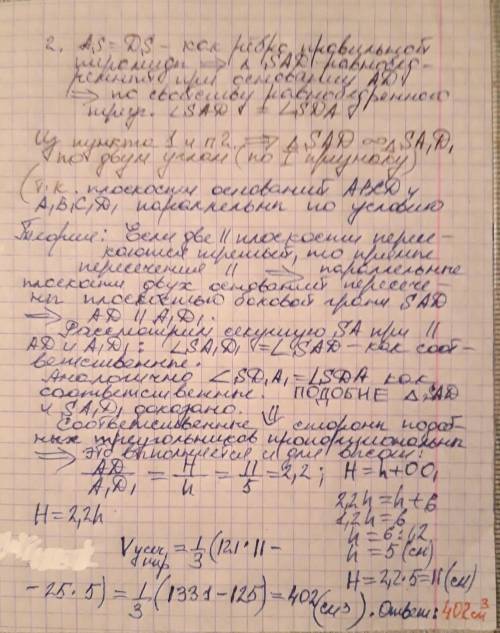 2. AS = DS - как рёбра правильной
пирамиды ⇒ △SAD равнобед-
ренный при основании AD,
⇒ по свойству равнобедренного
треуг. ∠SAD = ∠SDA
Из пункта 1 и п2. ⇒ △SAD ∞ △SA₁D₁
по двум углам (по 1 признаку)
(т.к. плоскости оснований ABCD и
A₁B₁C₁D₁ параллельны по условию
Теория: Если две || плоскости пересе-
каются третьей, то прямые
пересечения || ⇒ параллельные
плоскости двух оснований пересече-
ны плоскостью боковой грани SAD
⇒ AD || A₁D₁.
Рассмотрим секущую SA при ||
AD и A₁D₁: ∠SA₁D₁ = ∠SAD - как соот-
ветственные.
Аналогично ∠SD₁A₁ = ∠SDA как
соответственные. ПОДОБИЕ △SAD
и SA₁D₁ доказано. ⇓
Соответственные стороны подоб-
ных треугольников пропорциональны
⇒ это выполняется и для высот:
AD/A₁D₁ = H/h = 11/5 = 2,2; H = h + OO₁
H = 2,2h
2,2h = h + 6
1,2h = 6
h = 6:1,2
h = 5 (см)
H = 2,2·5 = 11 (см)
Vусеч. пир = 1/3 (121·11 -
- 25·5) = 1/3 (1331 - 125) = 402 (см³). Ответ: 402 см³